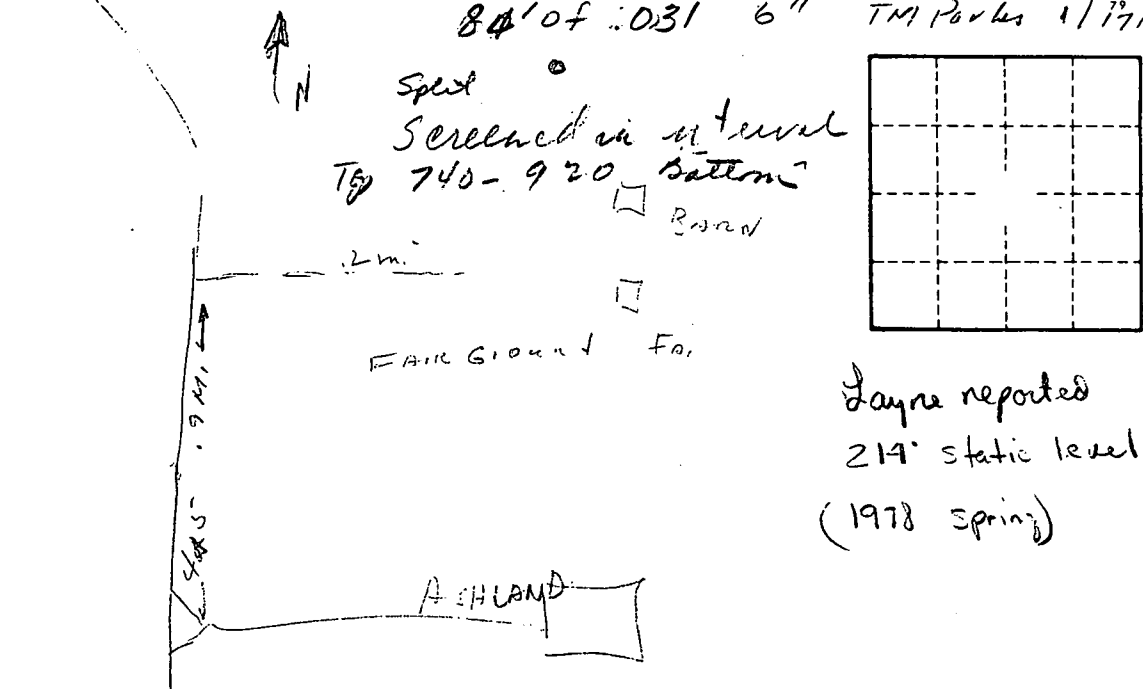 80' of .031 6" TM Parks
N
Split
Screened in interval
Top 740 - 920 Bottom
BARN
.2 mi
FAIR Ground
.9 M.
Layne reported
214' static level
(1978 spring)
ASHLAND